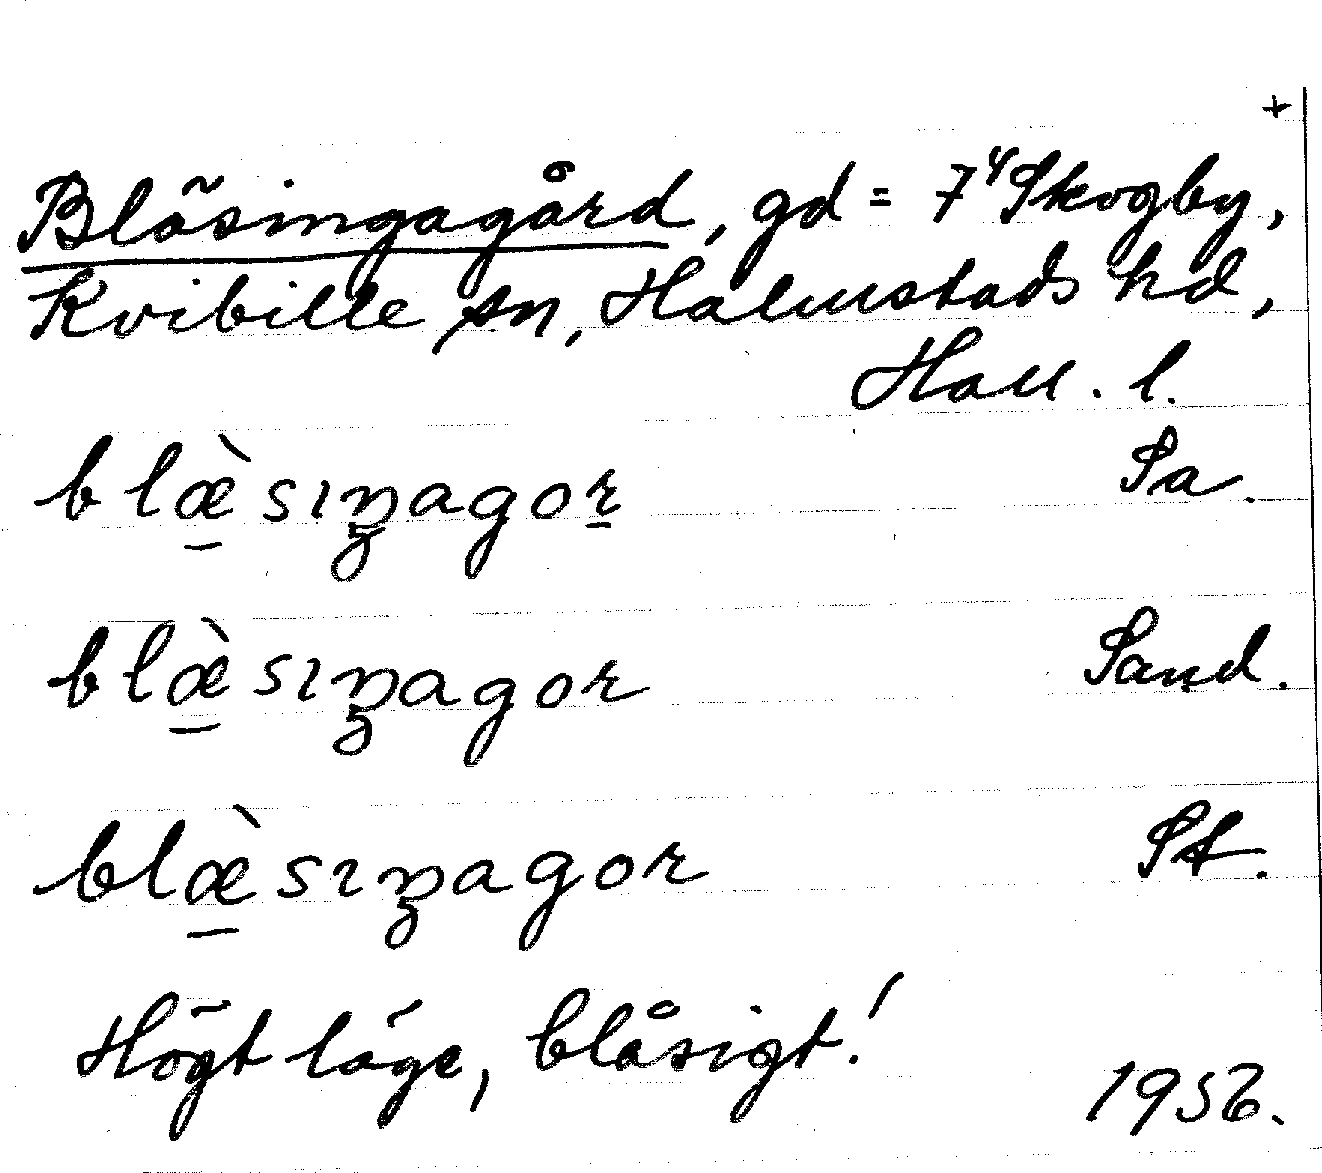 +
Bläsingagård, gd = 7⁴ Skogby,
Kvibille sn, Halmstads hd,
Hall. l.
blæ̱̀sıŋagoṟ Sa.
blæ̱̀sıŋagor Sand.
blæ̱̀sıŋagor St.
Högt läge, blåsigt!
1956.